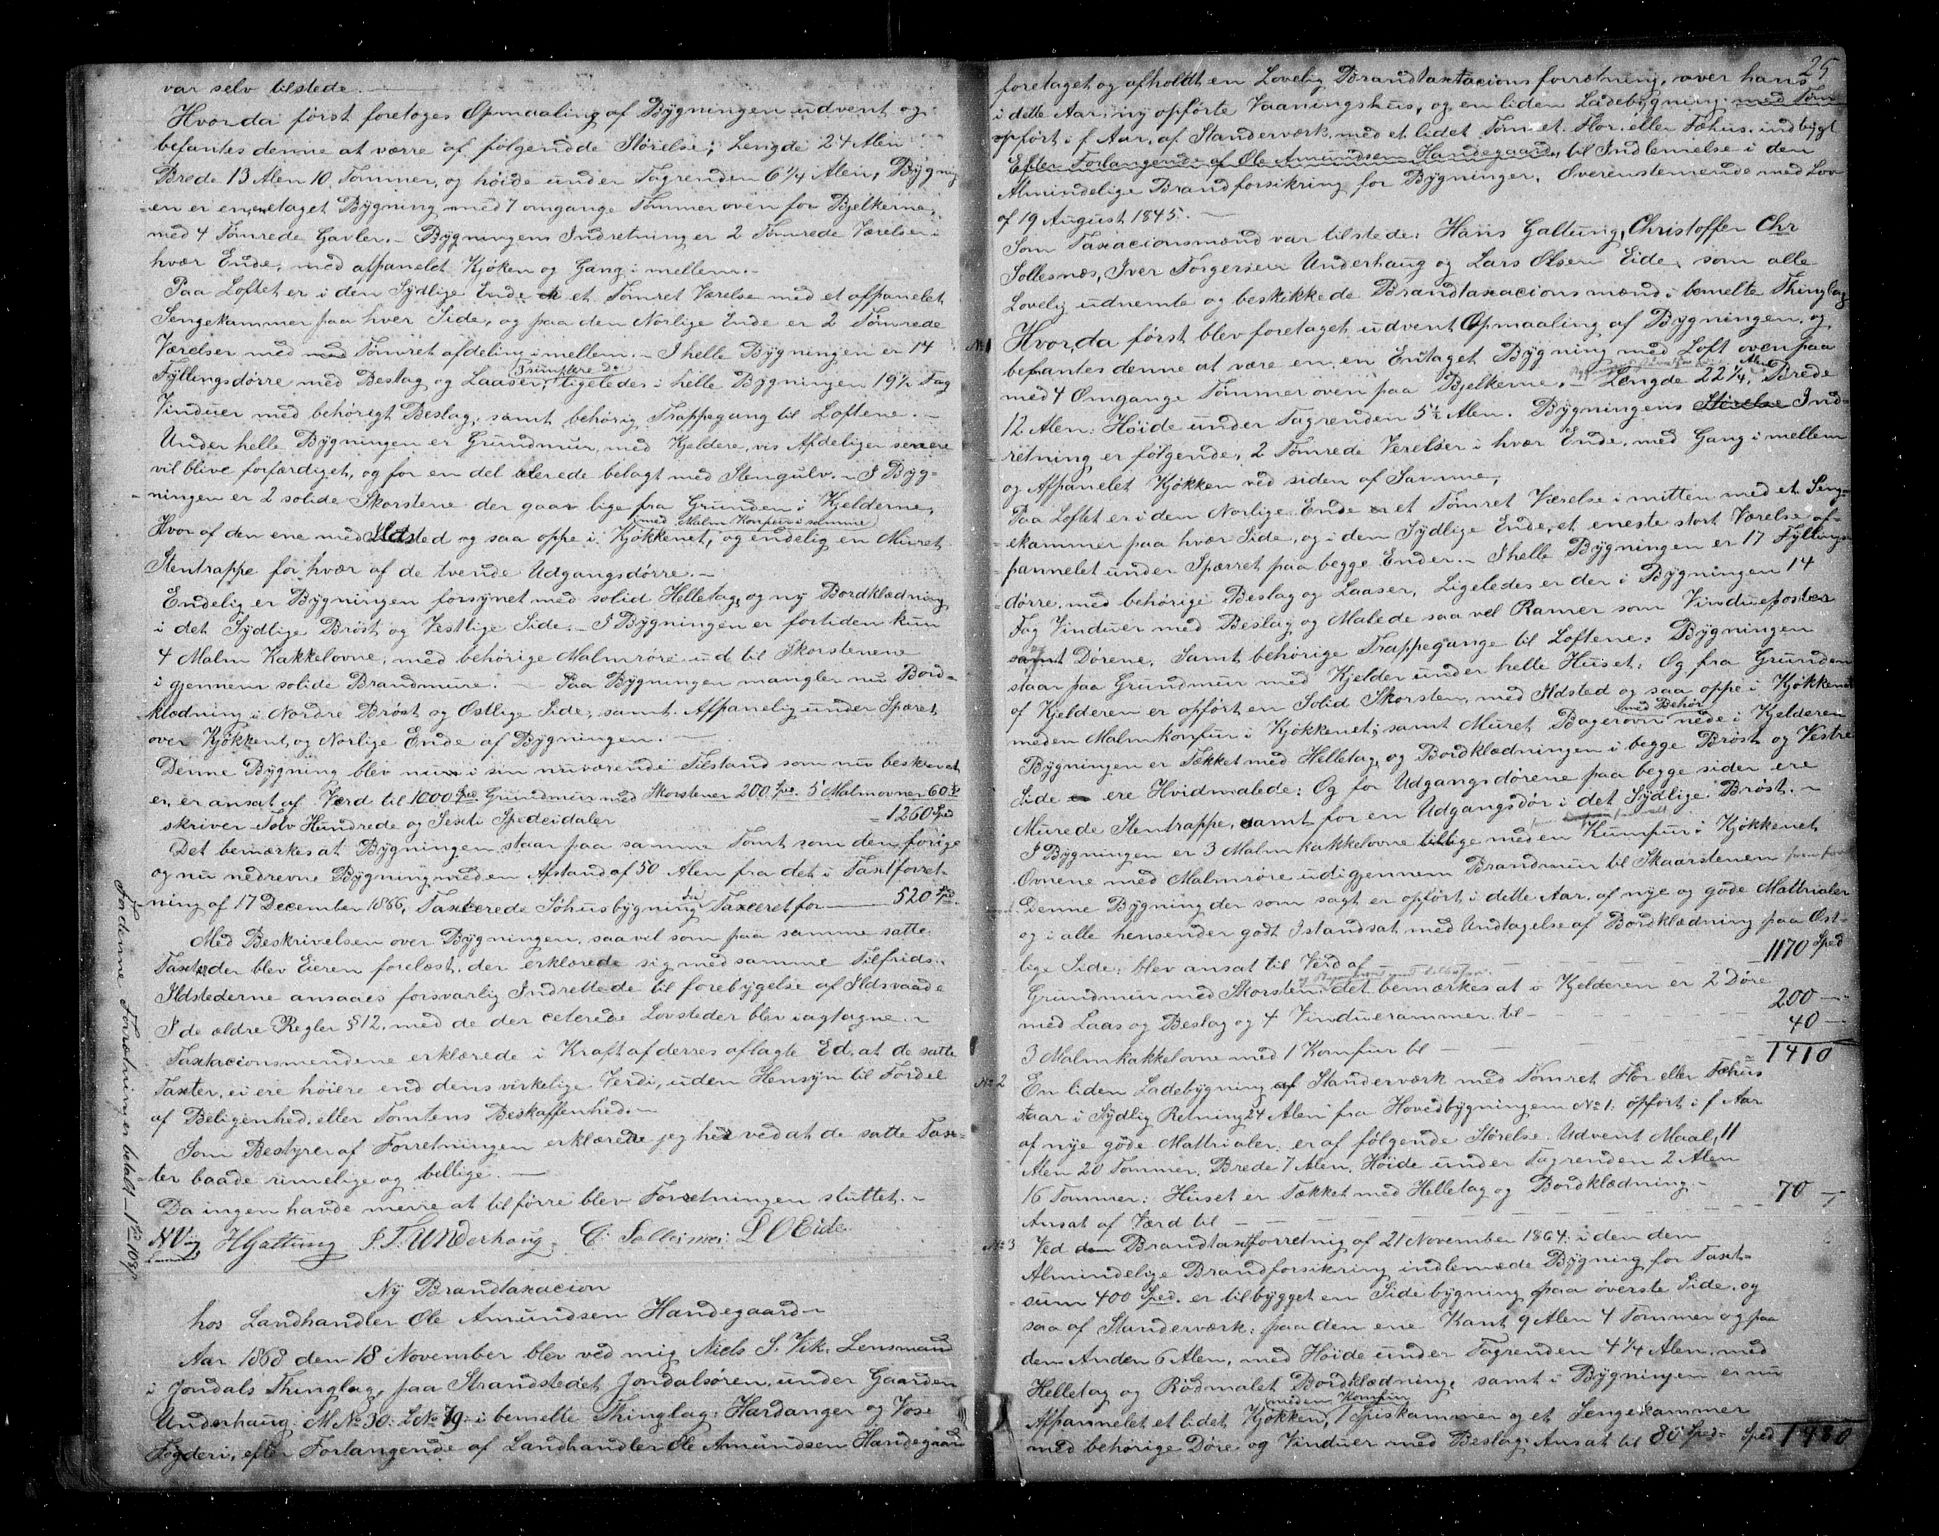 var selv tilstede.
Hvor da först foretoges Opmaaling af Bygningen udvent og
befantes denne at værre af følgendde Störelse; Lengde 24 Alen
Brede 13 Alen 10 Tommer, og höide under Tagrenden 6 1/4 Alen, Bygning
en er en etaget Bygning med 7 omgange Tömmer oven for Bjelkerne,
med 4 Tömrede Gavler. Bygningens Indretning er 2 Tömrede Værelser i
hvær Ende, med afpanelt Kjöken og Gang i mellem.
Paa Loftet er i den Sydlige Ende et Tömret Værelse med et afpanelet
Sengekammer paa hver Side, og paa den Norlige Ende er 2 Tömrede
Værelser med Tömret afdeling i mellem. I helle Bygningen er 14
Fyllingsdörre med Beslag og Laaser, ligeledes i helle Bygningen 19 1/2 Fag
Vinduer med behörigt Beslag, samt behörig Trappegang til Loftene.
Under helle Bygningen er Grundmur, med Kjeldere, vis Afdelinger senere
vil blive forfærdiget, og for en del allerede belagt med Stengulv. I Byg-
ningen er 2 solide Skorstene der gaar lige fra Grunden i Kjelderne,
med Malm Komfur i samme
Hvor af den ene med Ildsted og saa oppe i Kjökkenet, og endelig en Muret
Stentrappe for hvær af de tvende Udgangsdörre.
Endelig er Bygningen forsynet med solid Helletag, og ny Bordklædning
i det Sydlige Bröst og Vestlige Side. I Bygningen er fortiden kun
4 Malm Kakkelovne, med behörige Malmröre ud til Skorstenene
i gjennem solide Brandmure. Paa Bygningen mangler nu Bord-
klædning i Nordre Bröst og Östlige Side, samt Afpanelig under Spæret
over Kjökkent, og Norlige Ende af Bygningen.
Denne Bygning blev nu i sin nuværende Tilstand som nu beskrevet
er, er ansat af Værd til 1000 Spd Grundmur med Skorstener 200 Spd. 5 Malmovner 60 Sp
skriver Tolv Hundrede og Sexti Spedeidaler = 1260 Sped
Det bemærkes at Bygningen staar paa samme Tomt som den forige
og nu nedrevne Bygning med en Afstand af 50 Alen fra det i Taxtforret
ning af 17 December 1866, Taxterede Söhusbygning Taxeret for 520 Spd.
Med Beskrivelsen over Bygningen, saavil som paa samme satte
Taxter blev Eieren forelæst, der erklærede sig med samme Tilfrids.
Ildstederne ansaaes forsvarlig Indrettede til forebygelse af Ildsvaade
I de ældre Regler §12, med de der citerede Lovsteder blev iagtagne.
Taxtacionsmendene erklærede i Kraft af derres aflagte Ed, at de satte
Taxter, ei ere höiere end dens virkelige Verdi, uden Hensyn til Fordel
af Beligenhed, eller Tomtens Beskaffenhed.
Som Bestyrer af Forretningen erklærede jeg hed ved at de satte Tax-
ter baade rimelige og billige.
Da ingen havde meire at tilförre blev Forretningen sluttet.
N Vig HGaltung I. T. Underhoug. C. Sollesnes: L O Eide.
Lensmand
For denne Forretning er betalt
Ny Brandtaxacion
hos Landhandler Ole Amundsen Handegaard
Aar 1868 den 18 November blev ved mig Niels S. Vik. Lensmand
i Jondals Thinglag, paa Strandstedet Jondalsören, under Gaarden
Underhaug M No 30. L No 79 i bemelte Thinglag: Hardanger og Vose
Fogderi, efter Forlangende af Landhandler Ole Amundsen Handegaard
25
foretaget og afholdt en Lovelig Brandtaxtacions forretning, over hans
i dette Aar, ny opförte Vaaningshus, og en liden Ladebygning med Töm
opfört i f Aar, af Standerværk, med et lidet Tömret Flor eller Fæhus, indbygt
Efter Forlangende af Ole Amundsen Handegaard, til Indlemelse i den
Almindelige Brandforsikring for Bygninger, Överenstemende med Lov
af 19 August 1845.
Som Taxacionsmænd var tilstede: Hans Galtung, Christoffer Chr
Sollesnæs, Iver Torgersen Underhaug og Lars Olsen Eide, som alle
Lovlig udnemte og beskikkede Brandtaxacionsmænd i bemelte Thinglag
No 1 Hvor, da först blev foretaget udvent Opmaaling af Bygningen, og
befantes denne at være en, en Entaget Bygning med Loft oven paa
med 4 Omgange Tömmer oven paa Bjelkerne. Lengde 22 1/4 Alen Brede
12 Alen: Höide under Tagrenden 5 1/2 Alen. Bygningens Störelse Ind-
retning er fölgende, 2 Tömrede Verelser i hvær Ende, med Gang i mellem
og Afpanelet Kjökken ved siden af Samme,
Paa Loftet er i den Norlige Ende et Tömret Værelse i mitten med et Seng-
ekammer paa hvær Side, og i den Sydlige Ende, et eneste stort Værelse af-
pannelet under Spærret paa begge Ender. I helle Bygningen er 17 Fyllings
dörre, med behörige Beslag og Laaser, Ligeledes er der i Bygningen 14
Fag Vinduer med Beslag og Malede saa vel Ramer som Vindueposter
samt Dörene, Samt behörige Trappegange til Loftene: Bygningen
staar paa Grundmur med Kjelder under helle Huset: Og fra Grunden
af Kjelderen er opfört en Solid Skorsten, med Ildsted og saa oppe i Kjökkenet
med Behör
med en Malmkomfur i Kjökkenet; samt Muret Bagerovn nede i Kjelderen
Bygningen er Tækket med Helletag, og Bordklædningen i begge Bröst og Vestre
Side ere Hvidmalede: Og for Udgangsdörene paa begge sider ere
Murede Stentrappe, samt for en Udgangsdör i det Sydlige Bröst.
I Bygningen er 3 Malmkakkelovne tillige med en Kumfur i Kjökkenet
Ovnene med Malmröre ud igjennem Brandmur til Skaarstenen
Denne Bygning der som sagt er opfört i dette Aar, af nye og gode Mattrialer
og i alle hensender godt Istandsat med Undtagelse af Bordklædning paa Öst-
lige Side: blev ansat til Værd af 1170 Sped
Grundmur med Skorsten: det bemærkes at i Kjelderen er 2 Döre
med Laas og Beslag og 4 Vinduerammer til 200
3 Malmkakkelovne med 1 Komfur til 40
1410
No 2 En liden Ladebygning af Standerværk med Tömret Flor eller Fæhus
staar i Sydlig Retning 24 Alen fra Hovedbygningen No 1: opfört i f Aar
af nye göde Mattrialer, er af fölgende Störelse. Udvent Maal, 11
Alen 20 Tommer, Brede 7 Alen, Höide under Tagrenden 2 Alen
16 Tommer: Huset er Tækket med Helletag og Bordklædning.
Ansat af Værd til 70
No 3 Ved Brandtaxtforretnig af 21 November 1864 i den dem
Almindelige Brandforsikring indlemede Bygning for Taxt-
sum 400 Sped. er tilbygget en Sidebygning paa överste Side, og
saa af Standerværk: paa den ene Kant 9 Alen 4 Tommer og paa
den Anden 6 Alen, med Höide under Tagrenden 4 1/4 Alen, med
Helletag og Rödmalet Bordklædning, samt i Bygningen er nu
med en Komfur
Afpannelet et lidet Kjökken, 1 Spiskammer og et Sengekammer
med behörige Döre og Vinduer med Beslag: Ansat til 80 Sped Sped 1480